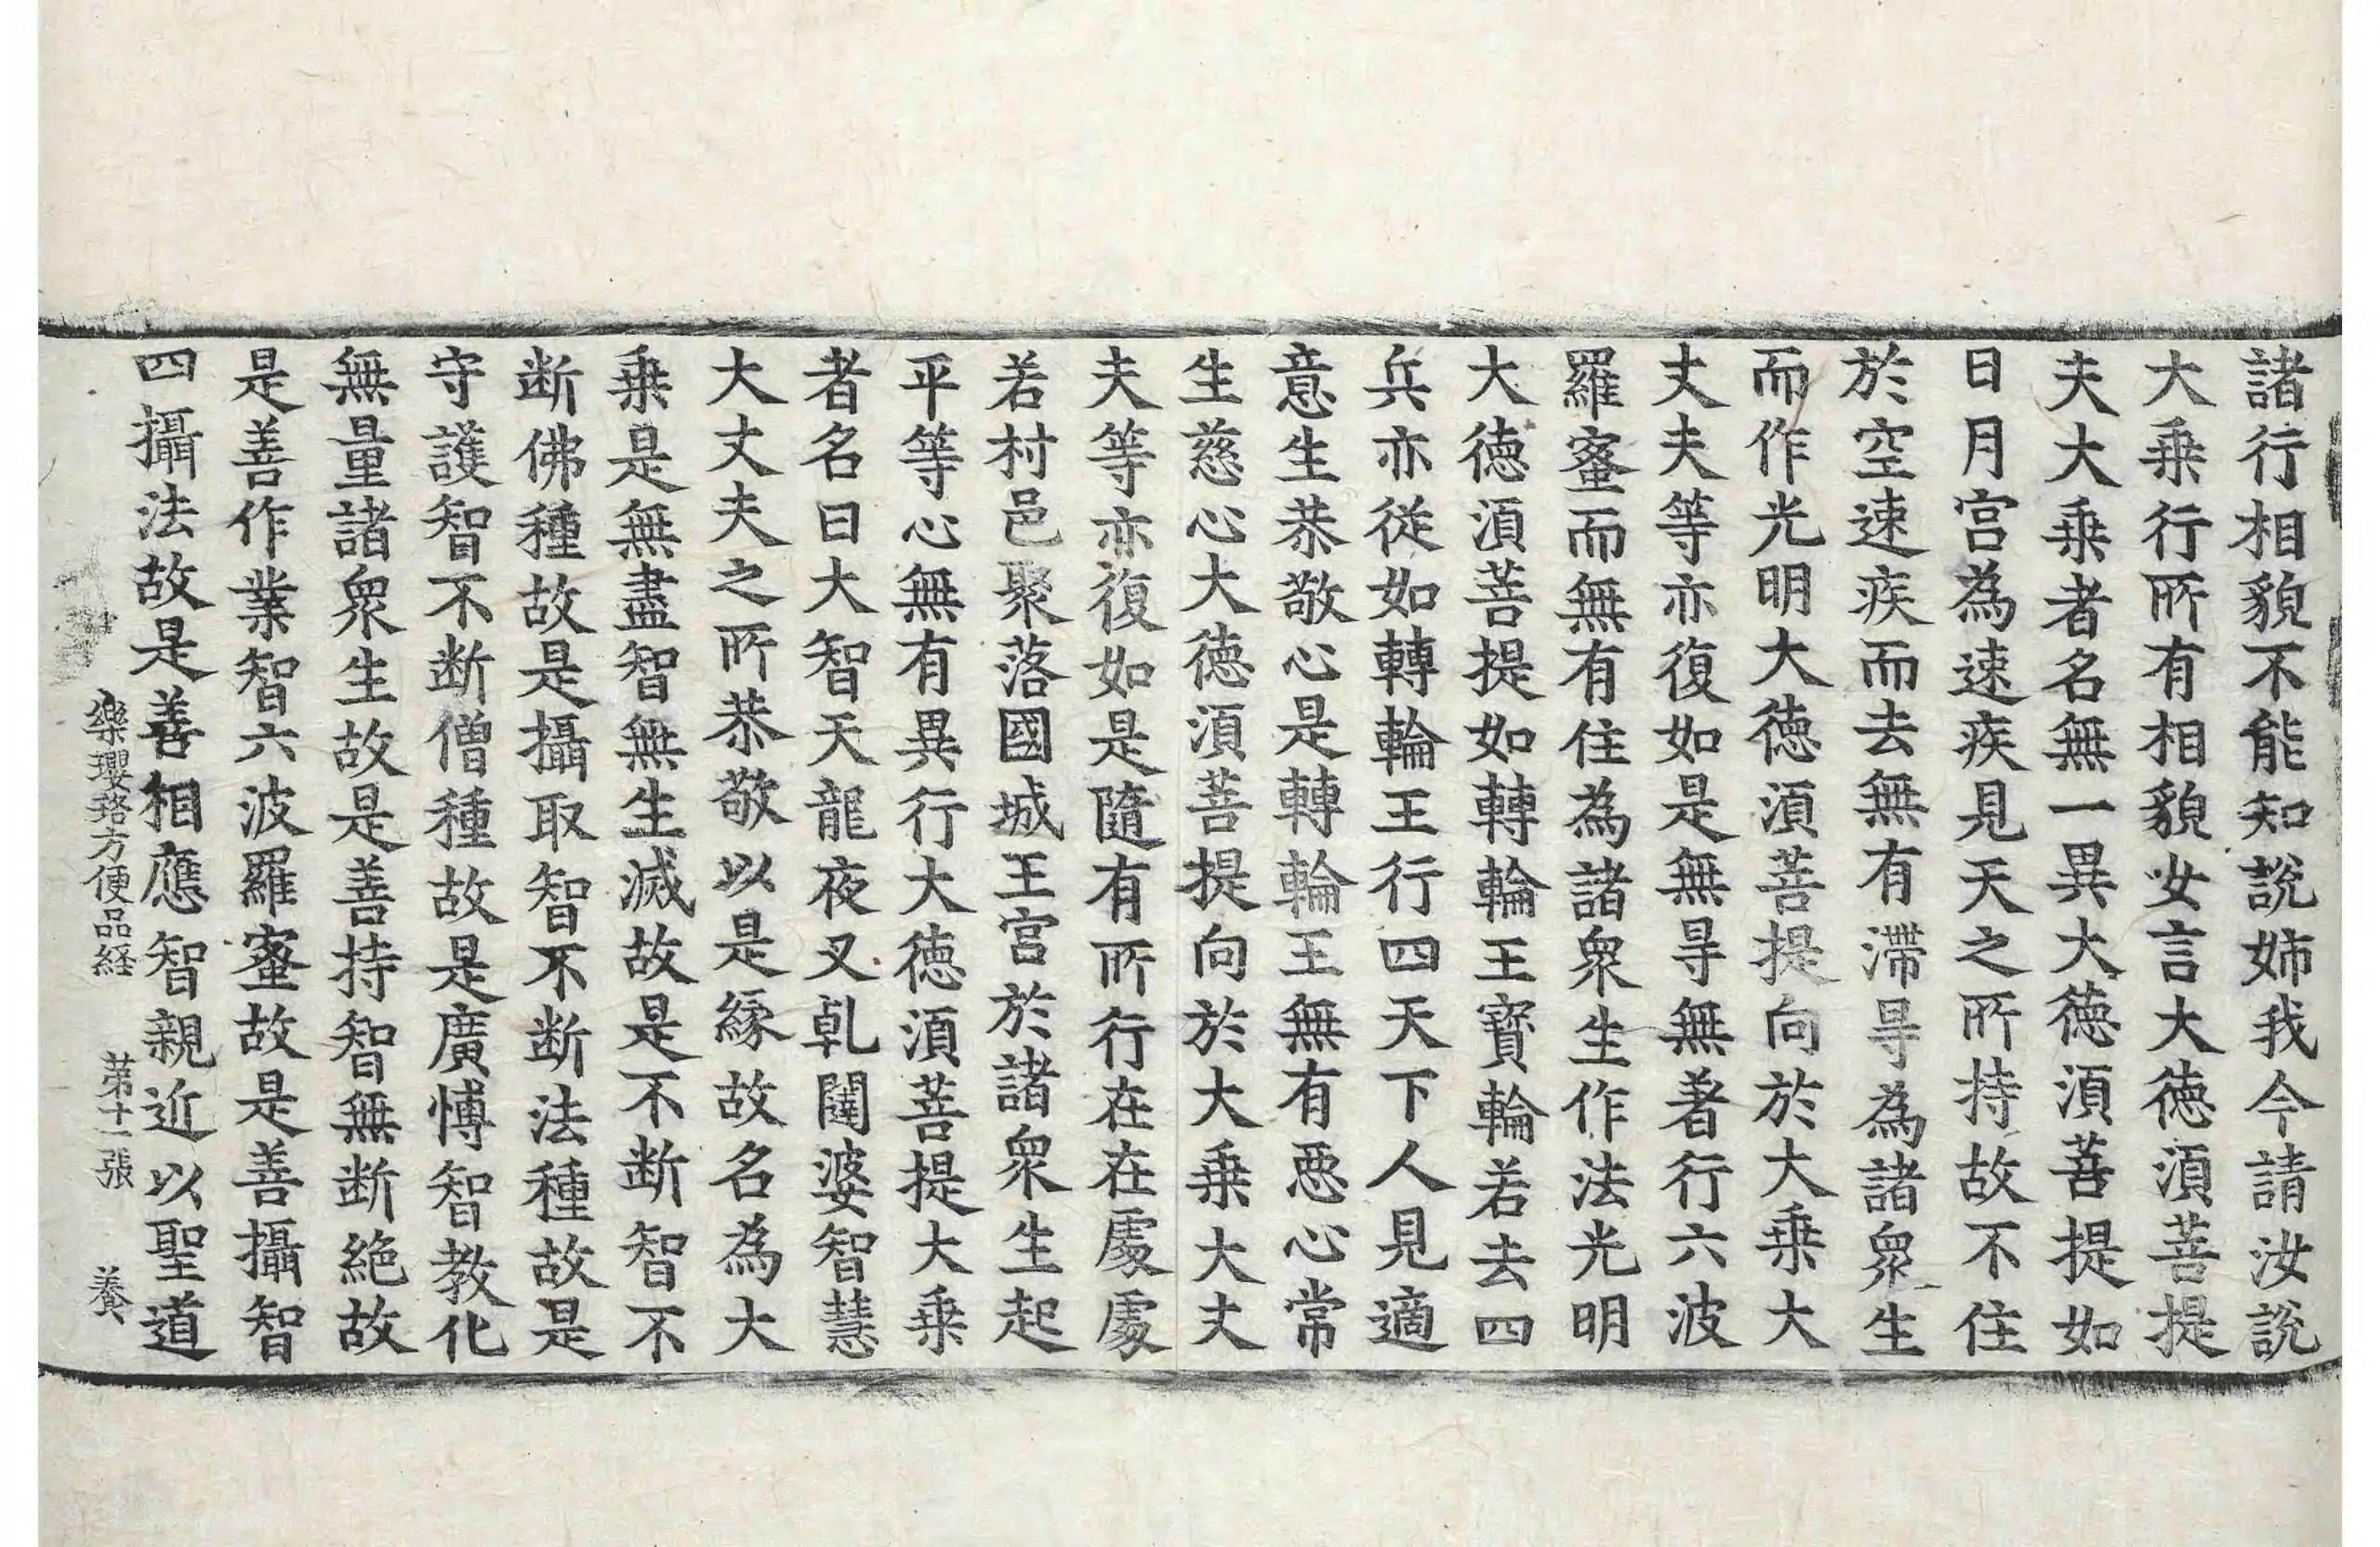 諸行相貌不能知說姊我今請汝說
大乗行所有相貌女言大徳湏菩提
夫大乗者名無一異大徳湏菩提如
日月宮為速疾見天之所持故不住
於空速疾而去無有滯㝵為諸衆生
而作光明大徳湏菩提向於大乗大
丈夫等亦復如是無㝵無著行六波
羅蜜而無有住為諸衆生作法光明
大徳湏菩提如轉輪王寳輪若去四
兵亦從如轉輪王行四天下人見適
意生恭敬心是轉輪王無有惡心常
生慈心大徳湏菩提向於大乗大丈
夫等亦復如是隨有所行在在處處
若村邑聚落國城王宮於諸衆生起
平等心無有異行大徳湏菩提大乗
者名曰大智天龍夜叉乹闥婆智慧
大丈夫之所恭敬以是縁故名為大
乗是無盡智無生滅故是不断智不
断佛種故是攝取智不断法種故是
守護智不断僧種故是廣愽智教化
無量諸衆生故是善持智無断絶故
是善作業智六波羅蜜故是善攝智
四攝法故是善相應智親近以聖道
樂瓔珞方便品経 苐十一張 養